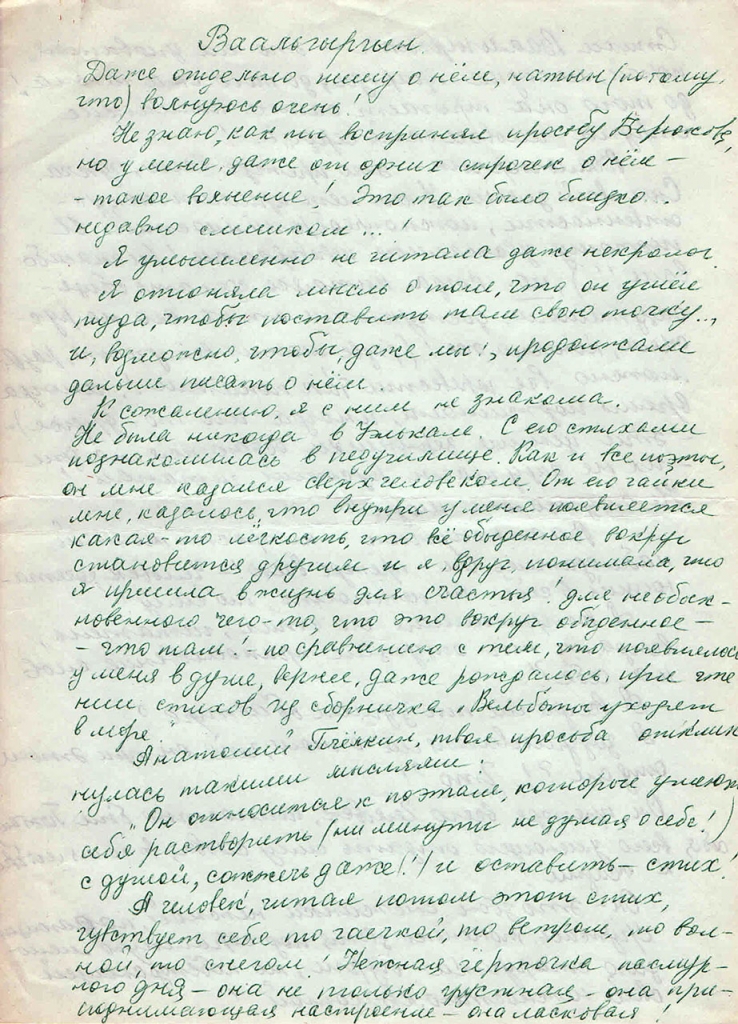 Ваальгыргын.
Даже отдельно пишу о нём, натын (потому,
что) волнуюсь очень!
Не знаю, как ты воспринял просьбу Бирюкова,
но у меня даже от одних строчек о нём –
– такое волнение! Это так было близко..
недавно слишком...!
Я умышленно не читала даже некролог.
Я отгоняла мысль о том, что он ушёл
туда, чтобы поставить там свою точку..,
и, возможно, чтобы, даже мы!, продолжали
дальше писать о нём.
К сожалению, я с ним не знакома.
Не была никогда в Уэлькале. С его стихами
познакомилась в педучилище. Как и все поэты,
он мне казался сверхчеловеком. От его чайки
мне, казалось, что внутри у меня появляется
какая-то лёгкость, что всё обыденное вокруг
становится другим и я, вдруг, понимала, что
я пришла в жизнь для счастья! для необык-
новенного чего-то, что это вокруг обыденное –
– что там! – по сравнению с тем, что появлялось
у меня в душе, вернее, даже рождалось, при чте
нии стихов из сборничка „Вельботы уходят
в море."
Анатолий Пчёлкин, твоя просьба отклик
нулась такими мыслями:
"Он относится к поэтам, которые умеют
себя растворить (ни минуты не думая о себе!)
с душой, сжечь даже(!) и оставить – стих!
А человек, читая потом этот стих,
чувствует себя то гаечкой, то ветром, то вол-
ной, то снегом! Нежная чёрточка пасмур-
ного дня – она не только грустная – она при-
поднимающая настроение – она ласковая!